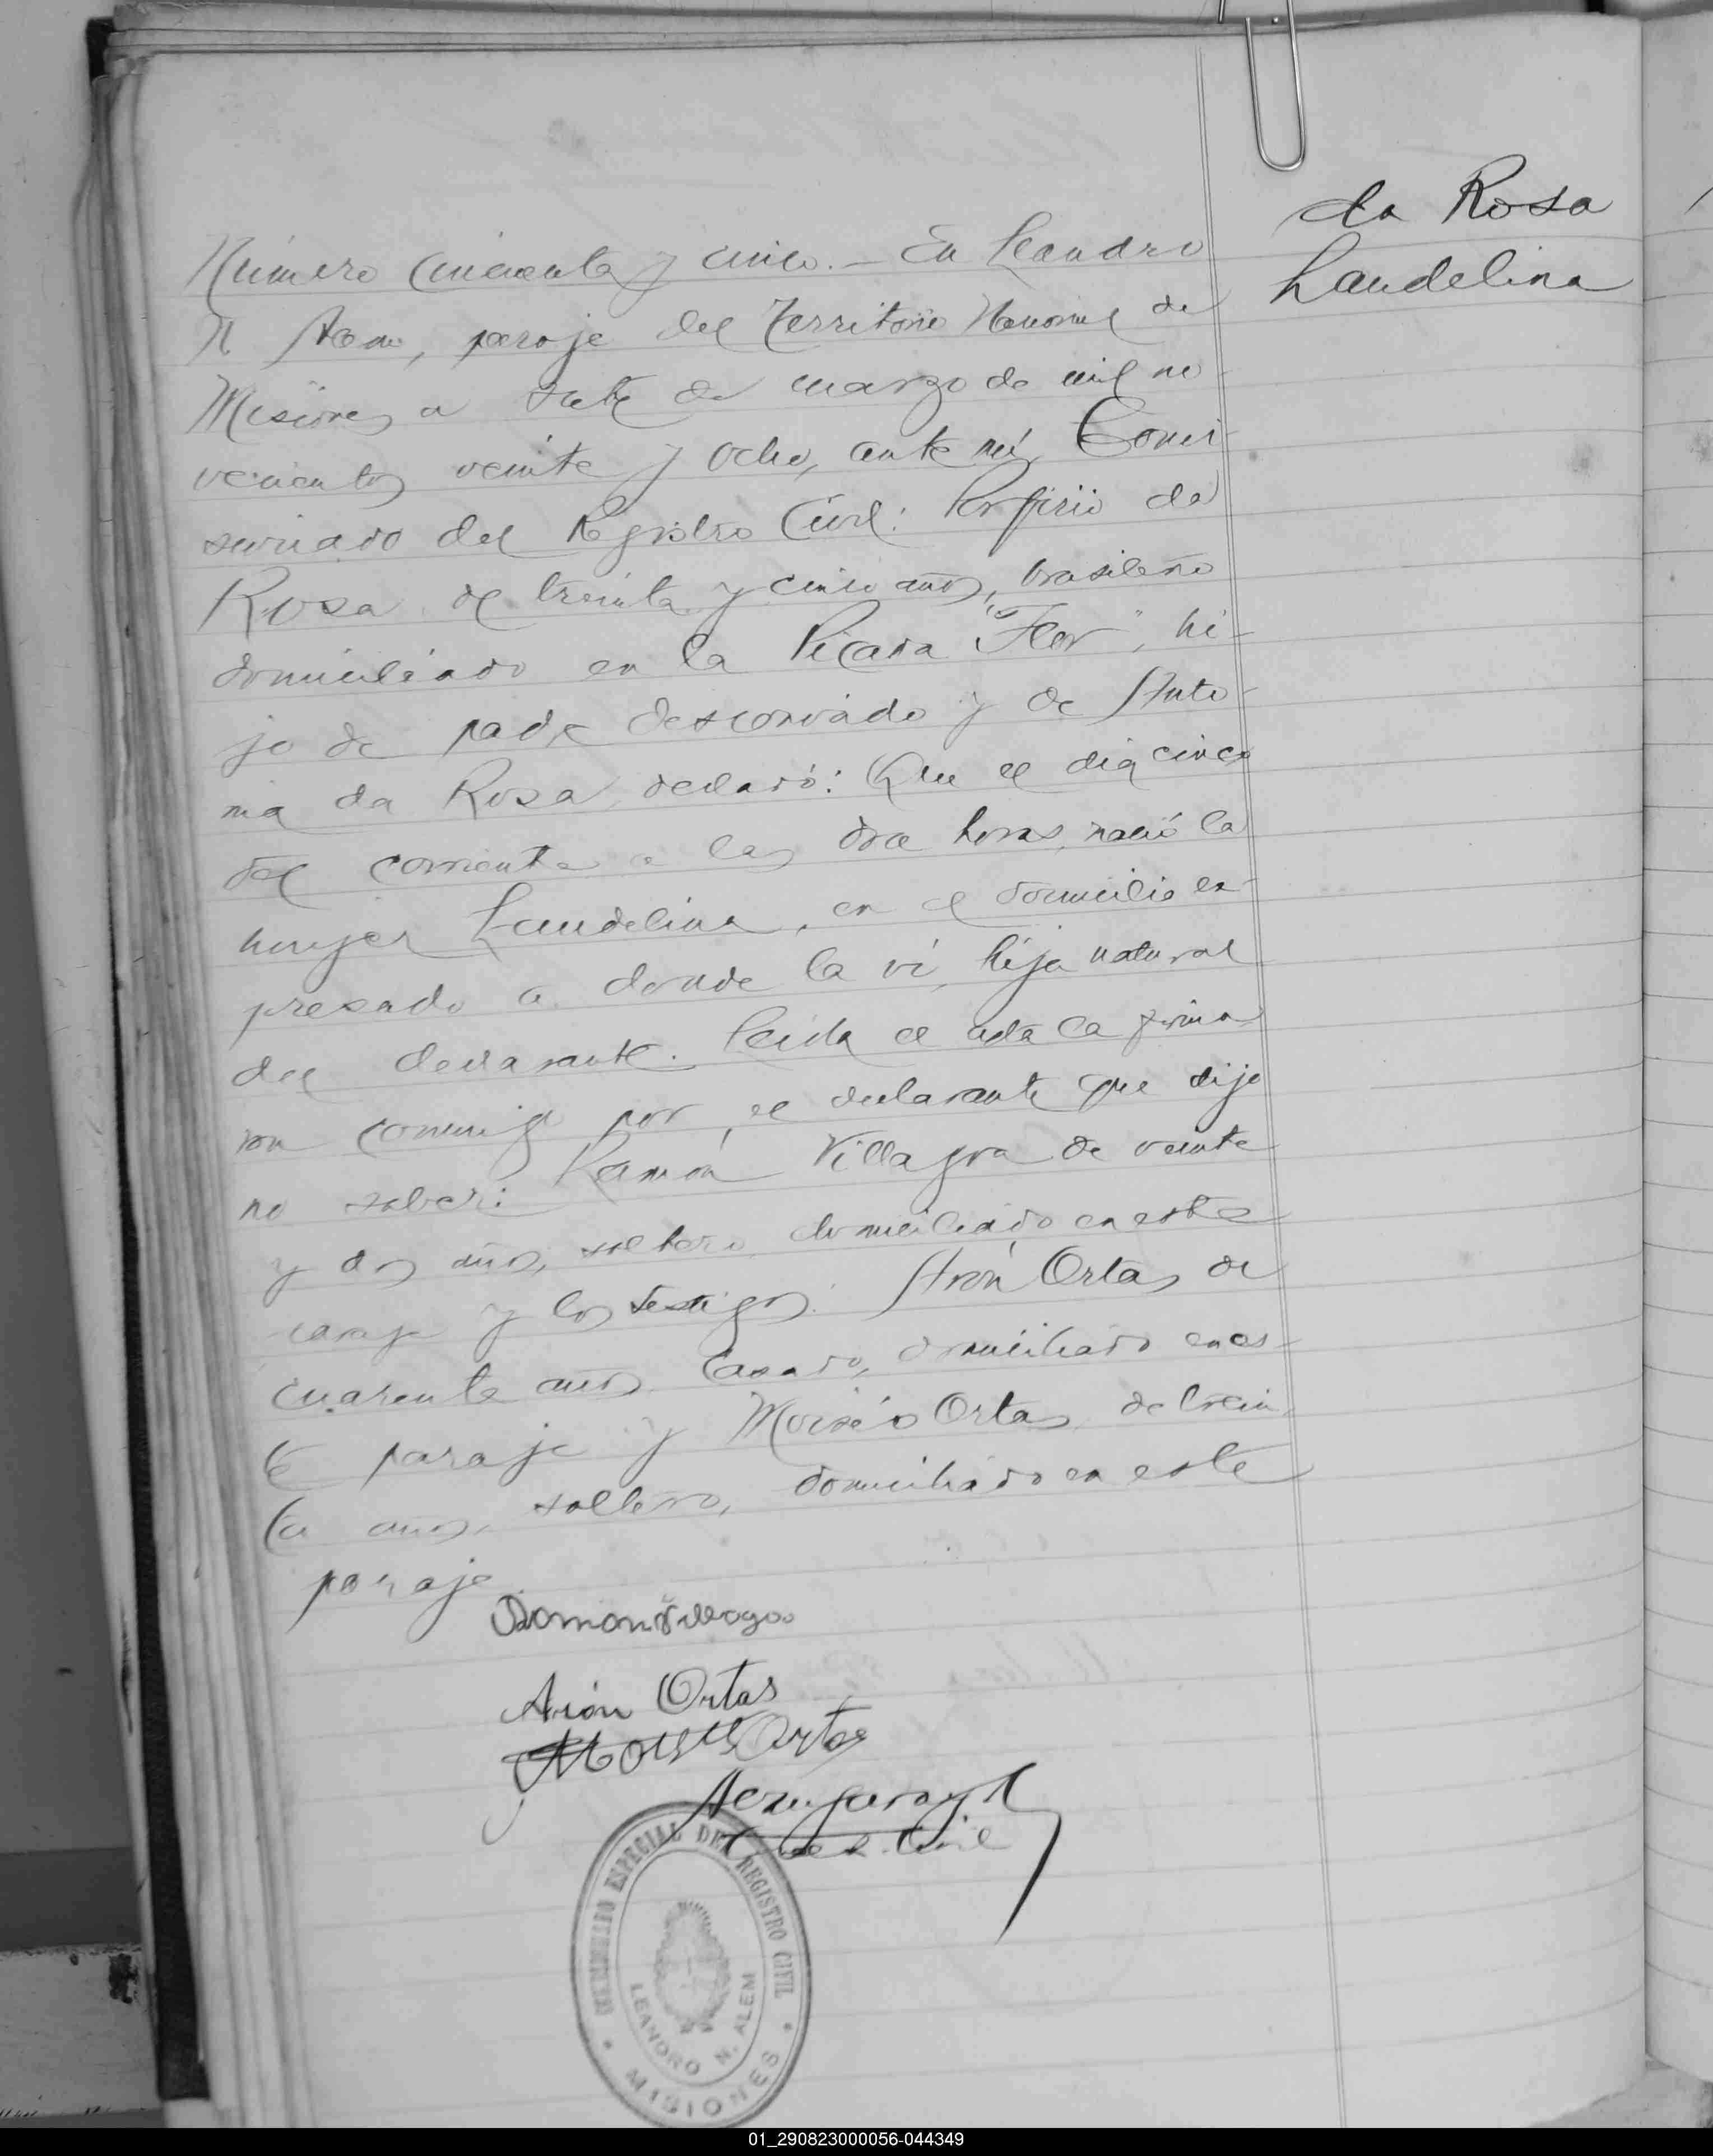 da Rosa
Laudelina
Número cincuenta y cinco. - En Leandro
N Alem, paraje del Territorio Nacional de
Misiones a siete de marzo de mil no-
vecientos veinte y ocho, ante mí, Comi-
sariado del Registro Civil: Porfirio da
Rosa de treinta y cinco años, brasileño
domiciliado en la Picada "Flor", hi-
jo de padre desconocido y de Anto-
nia da Rosa, declaró: Que el día cinco
del corriente a las doce horas, nació la
mujer Laudelina, en el domicilio ex-
presado a donde la vi, hija natural
del declarante. Leida el acta la firma
ron conmigo por el declarante que dijo
no saber: Ramón Villagra de veinte
y dos años, soltero, domiciliado en este
paraje y los testigos: Arón Ortas, de
cuarenta años casado, domiciliado en es-
te paraje y Moisés Ortas de trein-
ta años, soltero, domiciliado en este
paraje
Ramon Villagra
Arón Ortas
Moises Ortas
Civil
COMISARIADO ESPECIAL DEL REGISTRO CIVIL
LEANDRO N. ALEM
* MISIONES *
01_290823000056-044349